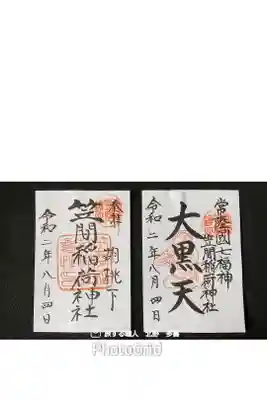 奉拝
胡桃下
笠間稲荷神社
令和二年八月四日
常陸国七福神
笠間稲荷神社
大黒天
令和二年八月四日
PhotoGrid